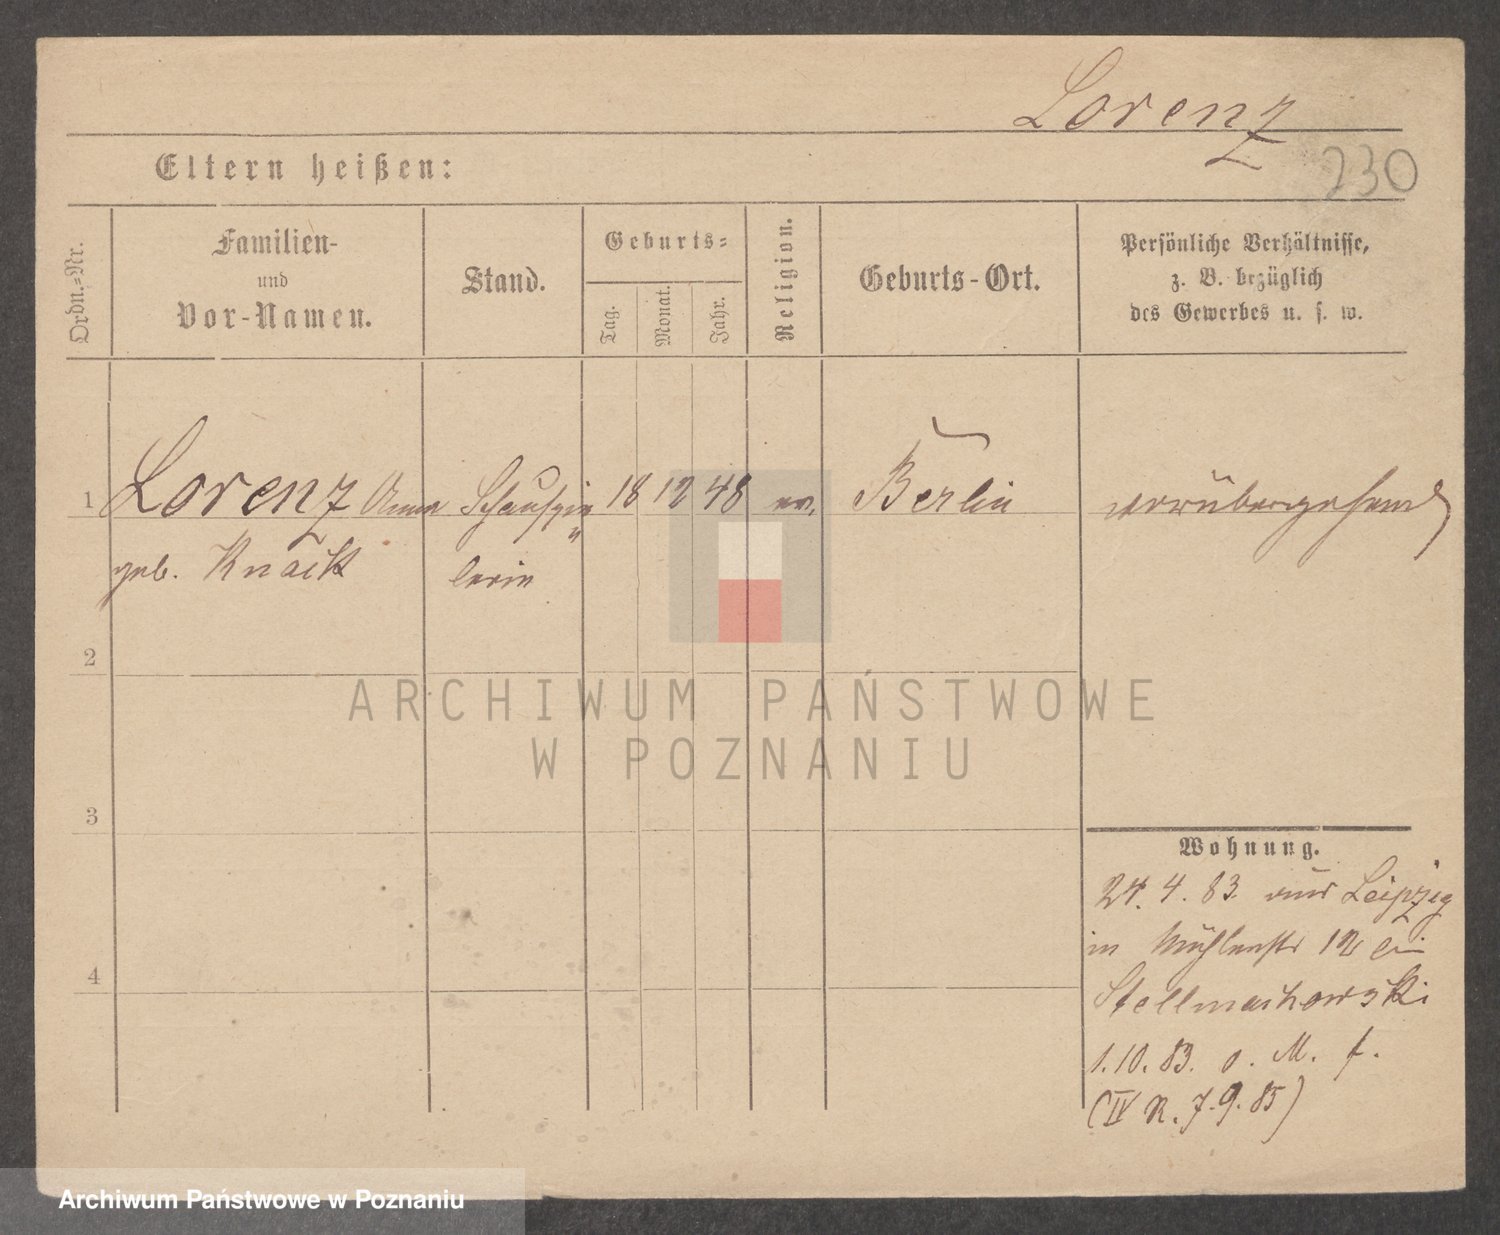 Lorenz
230
Eltern heißen:
Ordn.-Nr.
Familien-
und
Vor-Namen.
Stand.
Geburts-
Tag.
Monat.
Jahr.
Religion.
Geburts-Ort.
Persönliche Verhältnisse,
z. B. bezüglich
des Gewerbes u. s. w.
1
Lorenz Anna
geb. Knack
Schauspie
lerin
18 12 48
ev.
Berlin
vorübergehend
2
3
4
Wohnung.
24. 4. 83. aus Leipzig
in Mühlenstr 12 bei
Stellmachowski
1.10.83. o. M. f.
(IV R. 7.9.85)
ARCHIWUM PAŃSTWOWE
W POZNANIU
Archiwum Państwowe w Poznaniu